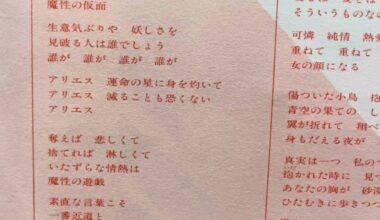 魔性の仮面
生意気ぶりや　妖しさを
見破る人は誰でしょう
誰が　誰が　誰が　誰が
アリエス　運命の星に身を灼いて
アリエス　滅ることも恐くない
アリエス
奪えば　悲しくて
捨てれば　淋しくて
いたずらな情熱は
魔性の遊戯
素直な言葉こそ
一番近道と
そういうものな
可憐　純情　熱愛
重ねて　重ねて
女の顔になる
傷ついた小鳥　抱
青空の果ての　し
翼が折れて　翔べ
身もだえる夜が
真実は一つ　私の
抱かれた時に　見つ
あなたの胸が　砂漠
ひたむきに歩きつ